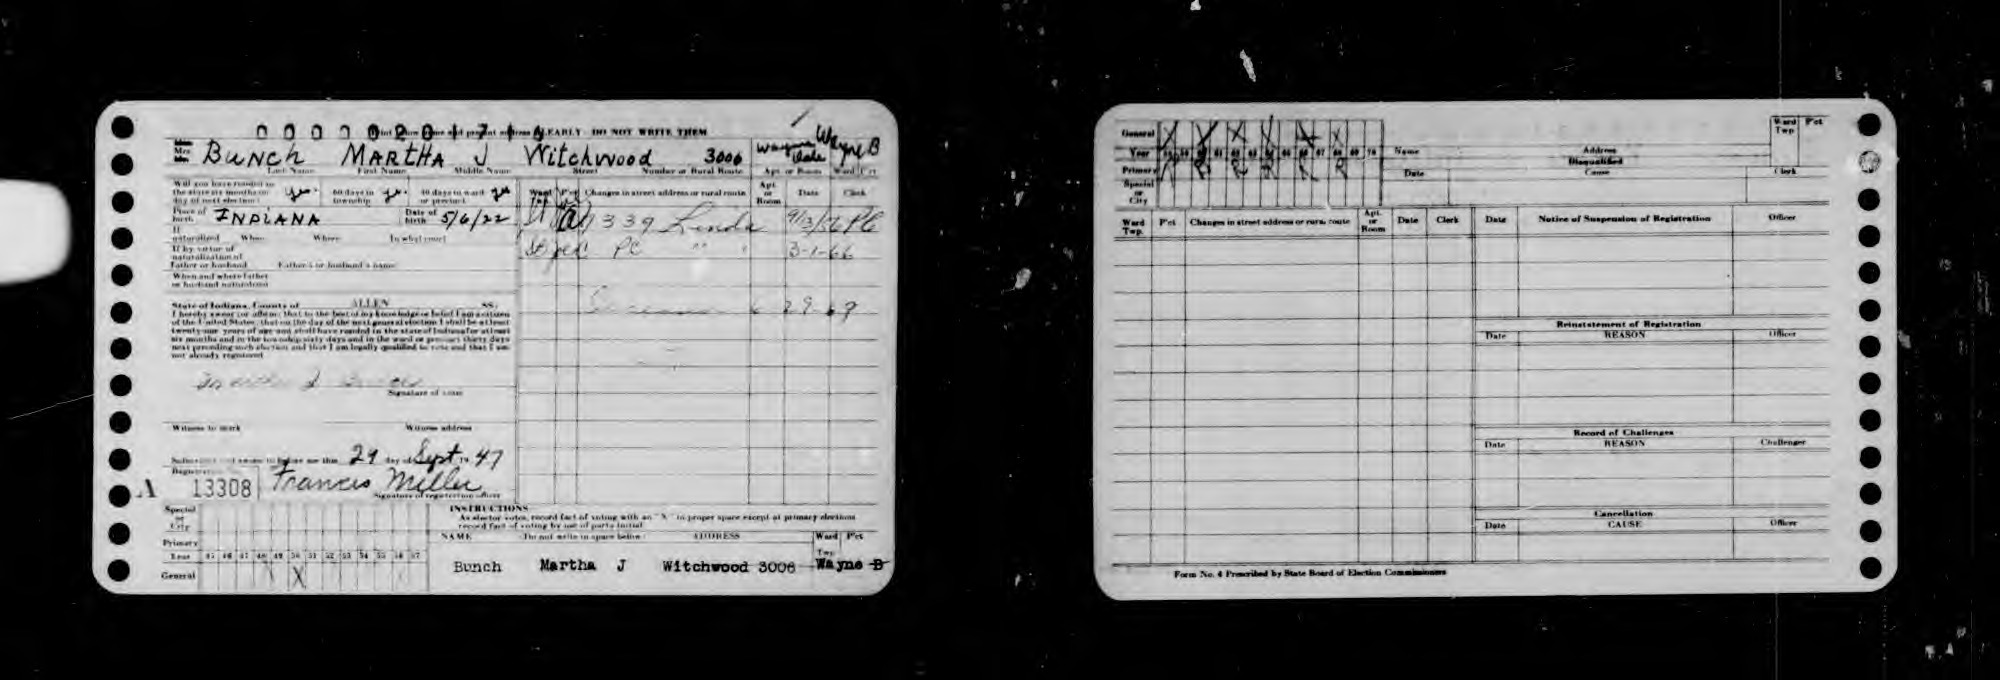 CLEARLY DO NOT WRITE THEM
Mrs. BUNCH MARTHA J Witchwood 3006 Wayne dale Wayne B
Last Name First Name Middle Name Street Number or Rural Route Apt. or Room Ward Pct
Will you have resided in the state six months on day of next election? yes 60 days in township yes 30 days in ward or precinct yes
Ward Twp. Pct Changes in street address or rural route Apt. or Room Date Clerk
Place of birth INDIANA Date of birth 5/6/22
339 Linda 9/13/56 PC
If naturalized When Where In what court
PC " " 3-1-66
If by virtue of naturalization of Father or husband Father's or husband's name
When and where father or husband naturalized
State of Indiana, County of ALLEN SS:
I hereby swear (or affirm) that to the best of my knowledge or belief I am a citizen
of the United States, that on the day of the next general election I shall be at least
twenty-one years of age and shall have resided in the state of Indiana for at least
six months and in the township sixty days and in the ward or precinct thirty days
next preceding such election and that I am legally qualified to vote and that I am
not already registered.
Martha J Bunch
Signature of voter
Witness to mark Witness address
Subscribed and sworn to before me this 29 day of Sept 19 47
A 13308 Francis Miller
Signature of registration officer
Special or City
INSTRUCTIONS
As elector votes, record fact of voting with an "X" in proper space except at primary elections
record fact of voting by use of party initial
Primary
NAME Do not write in space below ADDRESS Ward Twp. Pct
Year 45 46 47 48 49 50 51 52 53 54 55 56 57
General X
Bunch Martha J Witchwood 3006 Wayne B
General
Ward Twp Pct
Year 61 62 67 69 70
Name Address
Disqualified
Primary
Date Cause Clerk
Special or City
Ward Twp. Pct Changes in street address or rural route Apt. or Room Date Clerk
Date Notice of Suspension of Registration Officer
Reinstatement of Registration
Date REASON Officer
Record of Challenges
Date REASON Challenger
Cancellation
Date CAUSE Officer
Form No. 4 Prescribed by State Board of Election Commissioners